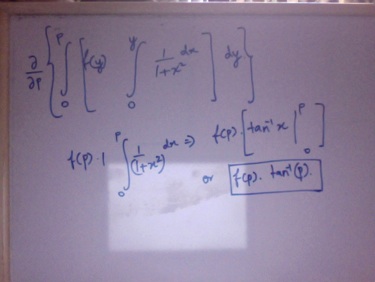 ∂/∂p { ∫₀ᵖ [ f(y) ∫₀ʸ 1/(1+x²) dx ] dy }
f(p)·1 ∫₀ᵖ (1/(1+x²)) dx ⇒ f(p)·[ tan⁻¹x |₀ᵖ ]
or f(p)· tan⁻¹(p).